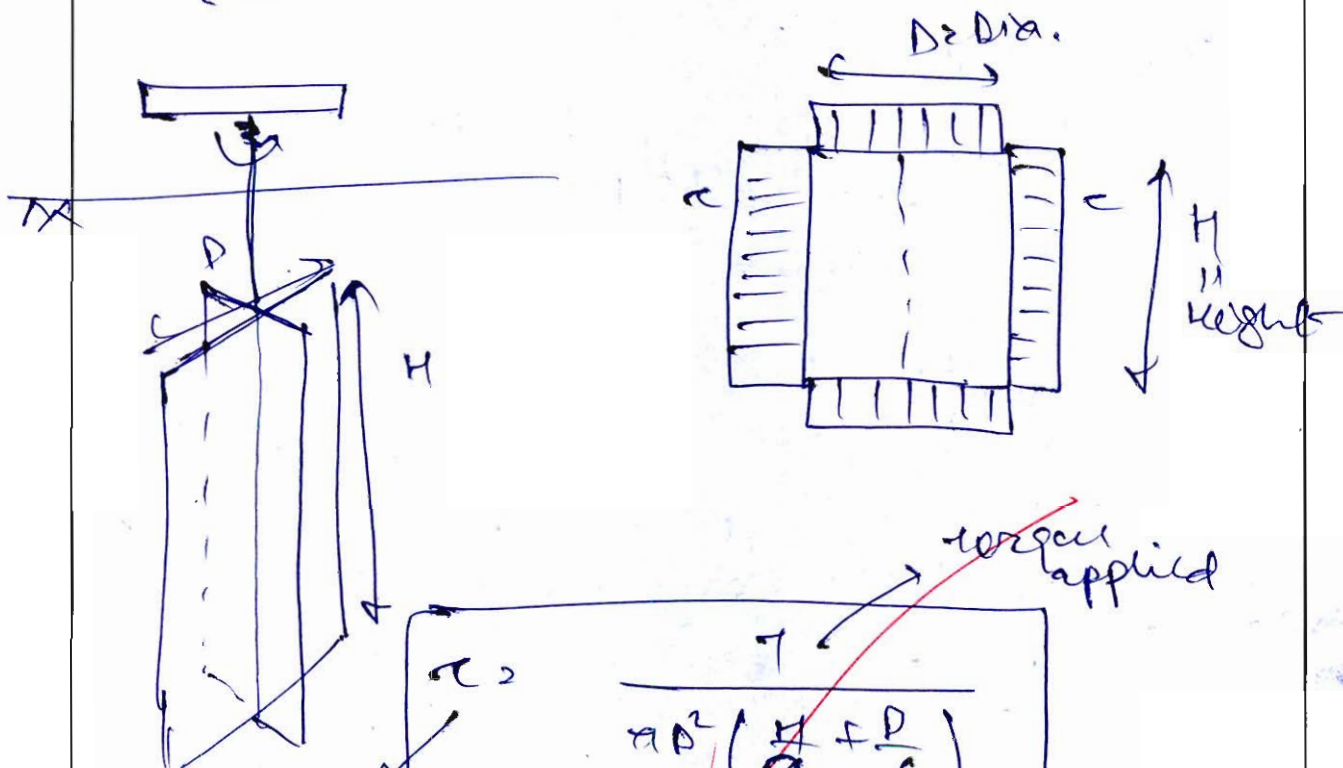 D = Dia.
D
H
τ
τ
H
=
Height
torque
applied
τ =
T
πD² ( H + D )